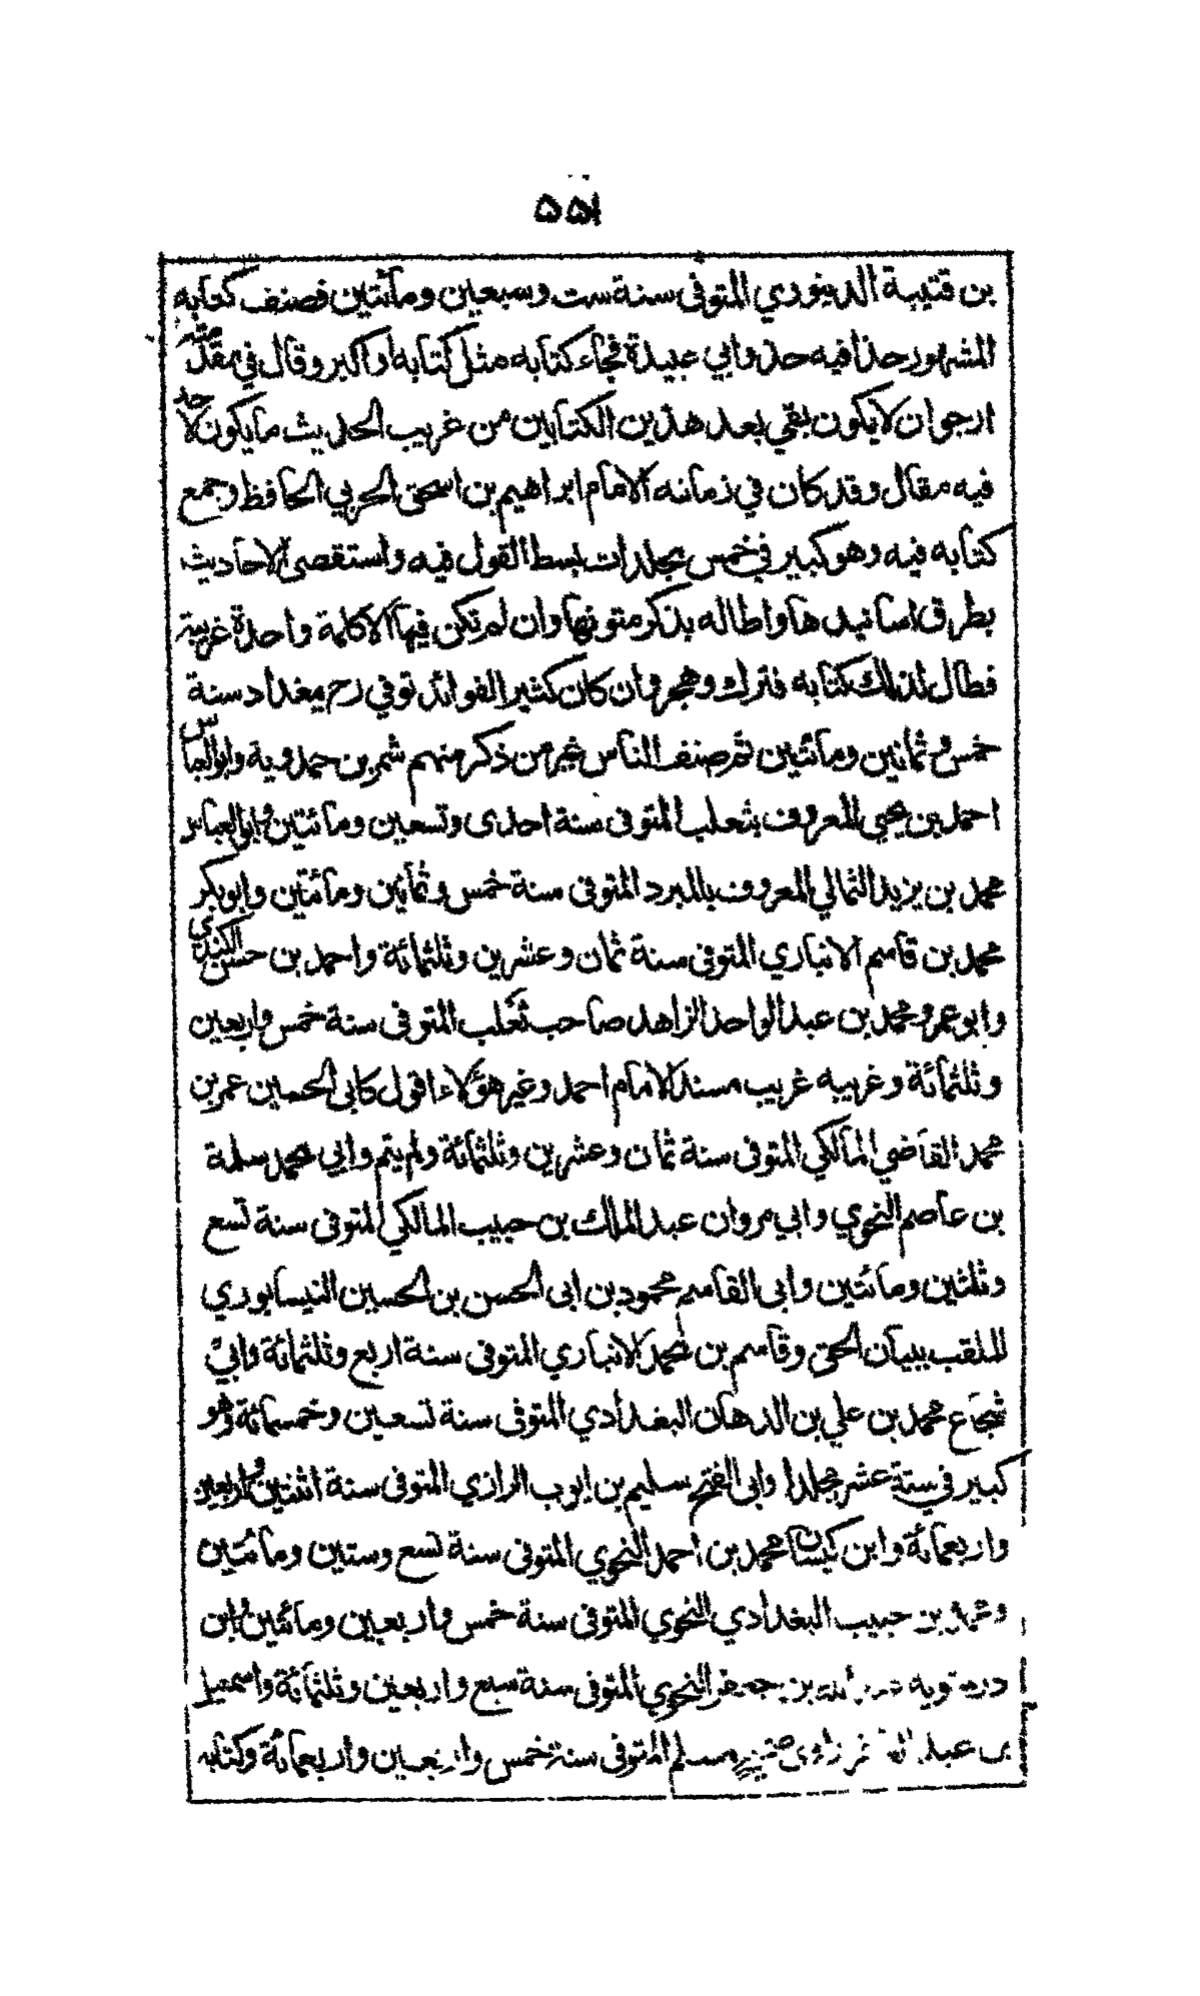 ٥٥١
بن قتيبة الدينوري المتوفى سنة ست وسبعين ومائتين فصنف كتابه
المشهور حذا فيه حذو ابي عبيدة فجاء كتابه مثل كتابه او اكبر وقال في مقدمته
ارجو ان لا يكون بقي بعد هذين الكتابين من غريب الحديث ما يكون لاحد
فيه مقال وقد كان في زمانه الامام ابراهيم بن اسحق الحربي الحافظ وجمع
كتابه فيه وهو كبير في خمس مجلدات بسط القول فيه واستقصى الاحاديث
بطرق اسانيدها واطاله بذكر متونها وان لم تكن فيها الا كلمة واحدة غريبة
فطال لذلك كتابه فترك وهجر وان كان كثير الفوائد توفي رح ببغداد سنة
خمس وثمانين ومائتين ثم صنف الناس غير من ذكر منهم شمر بن حمدوية وابو العباس
احمد بن يحيى المعروف بثعلب المتوفى سنة احدى وتسعين ومائتين وابو العباس
محمد بن يزيد الثمالي المعروف بالمبرد المتوفى سنة خمس وثمانين ومائتين وابو بكر
محمد بن قاسم الانباري المتوفى سنة ثمان وعشرين وثلثمائة واحمد بن حسن الكندي
وابو عمرو محمد بن عبد الواحد الزاهد صاحب ثعلب المتوفى سنة خمس واربعين
وثلثمائة وغريبه غريب مسند الامام احمد وغير هؤلاء اقول كابى الحسين عمر بن
محمد القاضي المالكي المتوفى سنة ثمان وعشرين وثلثمائة ولم يتم وابي محمد سلمة
بن عاصم النحوي وابي مروان عبد الملك بن حبيب المالكي المتوفى سنة تسع
وثلثين ومائتين وابى القاسم محمود بن ابى الحسن بن الحسين النيسابوري
الملقب ببيان الحق وقاسم بن محمد الانباري المتوفى سنة اربع وثلثمائة وابي
شجاع محمد بن علي بن الدهان البغدادي المتوفى سنة تسعين وخمسمائة وهو
كبير في ستة عشر مجلدا وابى الفتح سليم بن ايوب الرازي المتوفى سنة اثنتين واربعين
واربعمائة وابن كيسان محمد بن احمد النحوي المتوفى سنة تسع وستين ومائتين
ومحمد بن حبيب البغدادي النحوي المتوفى سنة خمس واربعين ومائتين وابن
درستويه بن جعفر النحوي المتوفى سنة سبع واربعين وثلثمائة واسمعيل
بن عبد مسلم المتوفى سنة خمس واربعين واربعمائة وكتابه